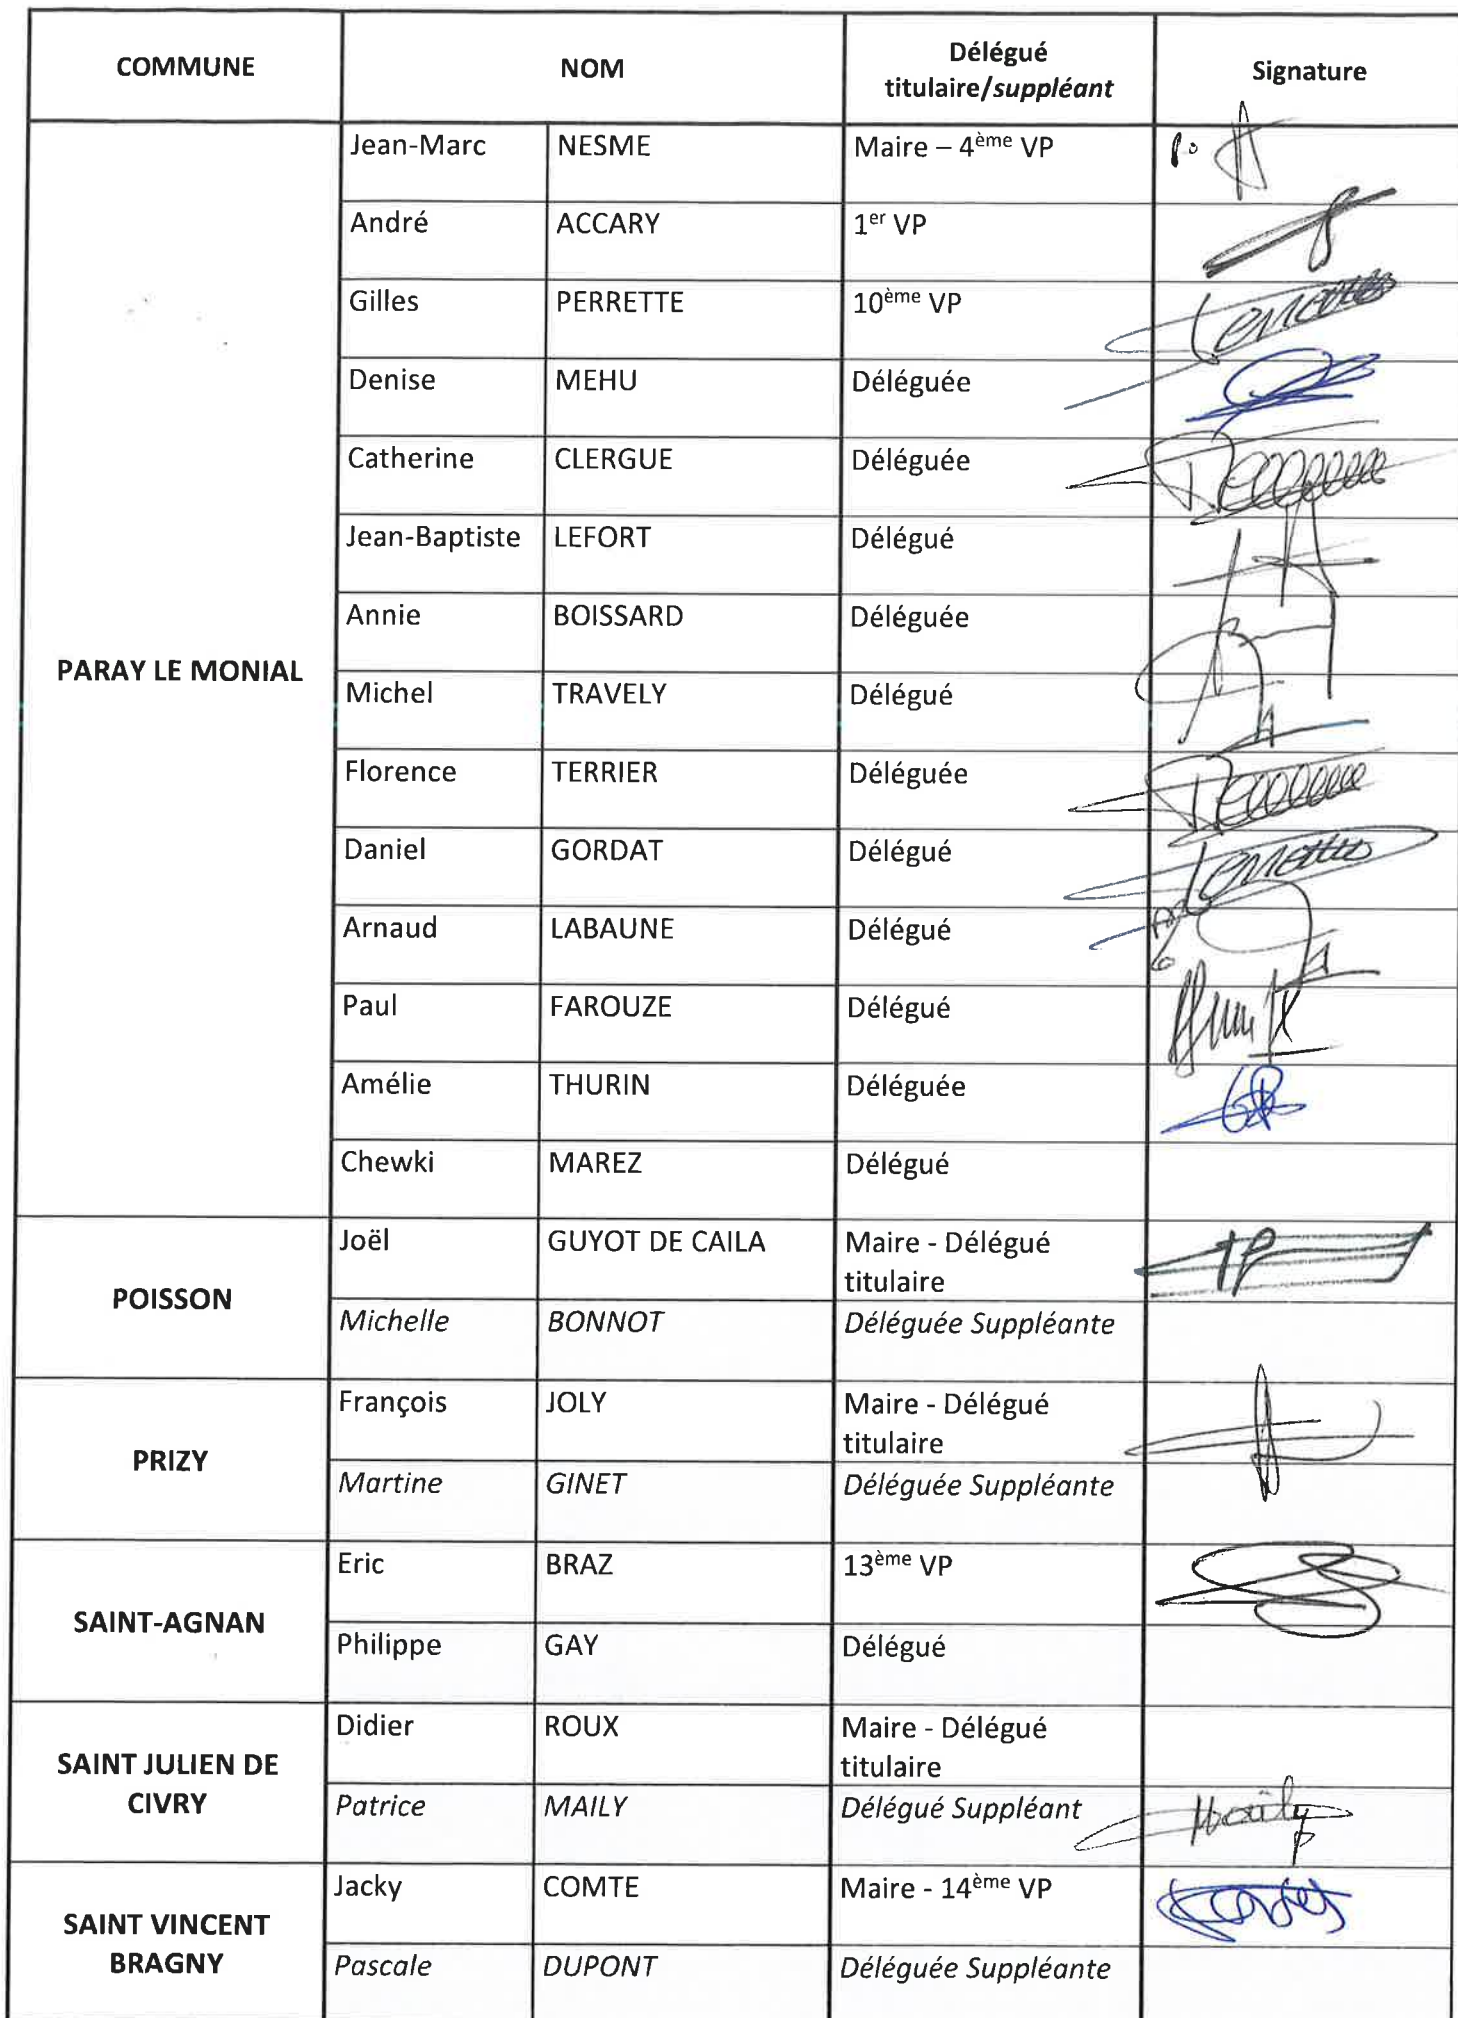 COMMUNE NOM Délégué titulaire/suppléant Signature
PARAY LE MONIAL
Jean-Marc NESME Maire – 4ème VP
André ACCARY 1er VP
Gilles PERRETTE 10ème VP
Denise MEHU Déléguée
Catherine CLERGUE Déléguée
Jean-Baptiste LEFORT Délégué
Annie BOISSARD Déléguée
Michel TRAVELY Délégué
Florence TERRIER Déléguée
Daniel GORDAT Délégué
Arnaud LABAUNE Délégué
Paul FAROUZE Délégué
Amélie THURIN Déléguée
Chewki MAREZ Délégué
POISSON
Joël GUYOT DE CAILA Maire - Délégué
titulaire
Michelle BONNOT Déléguée Suppléante
PRIZY
François JOLY Maire - Délégué
titulaire
Martine GINET Déléguée Suppléante
SAINT-AGNAN
Eric BRAZ 13ème VP
Philippe GAY Délégué
SAINT JULIEN DE
CIVRY
Didier ROUX Maire - Délégué
titulaire
Patrice MAILY Délégué Suppléant
SAINT VINCENT
BRAGNY
Jacky COMTE Maire - 14ème VP
Pascale DUPONT Déléguée Suppléante